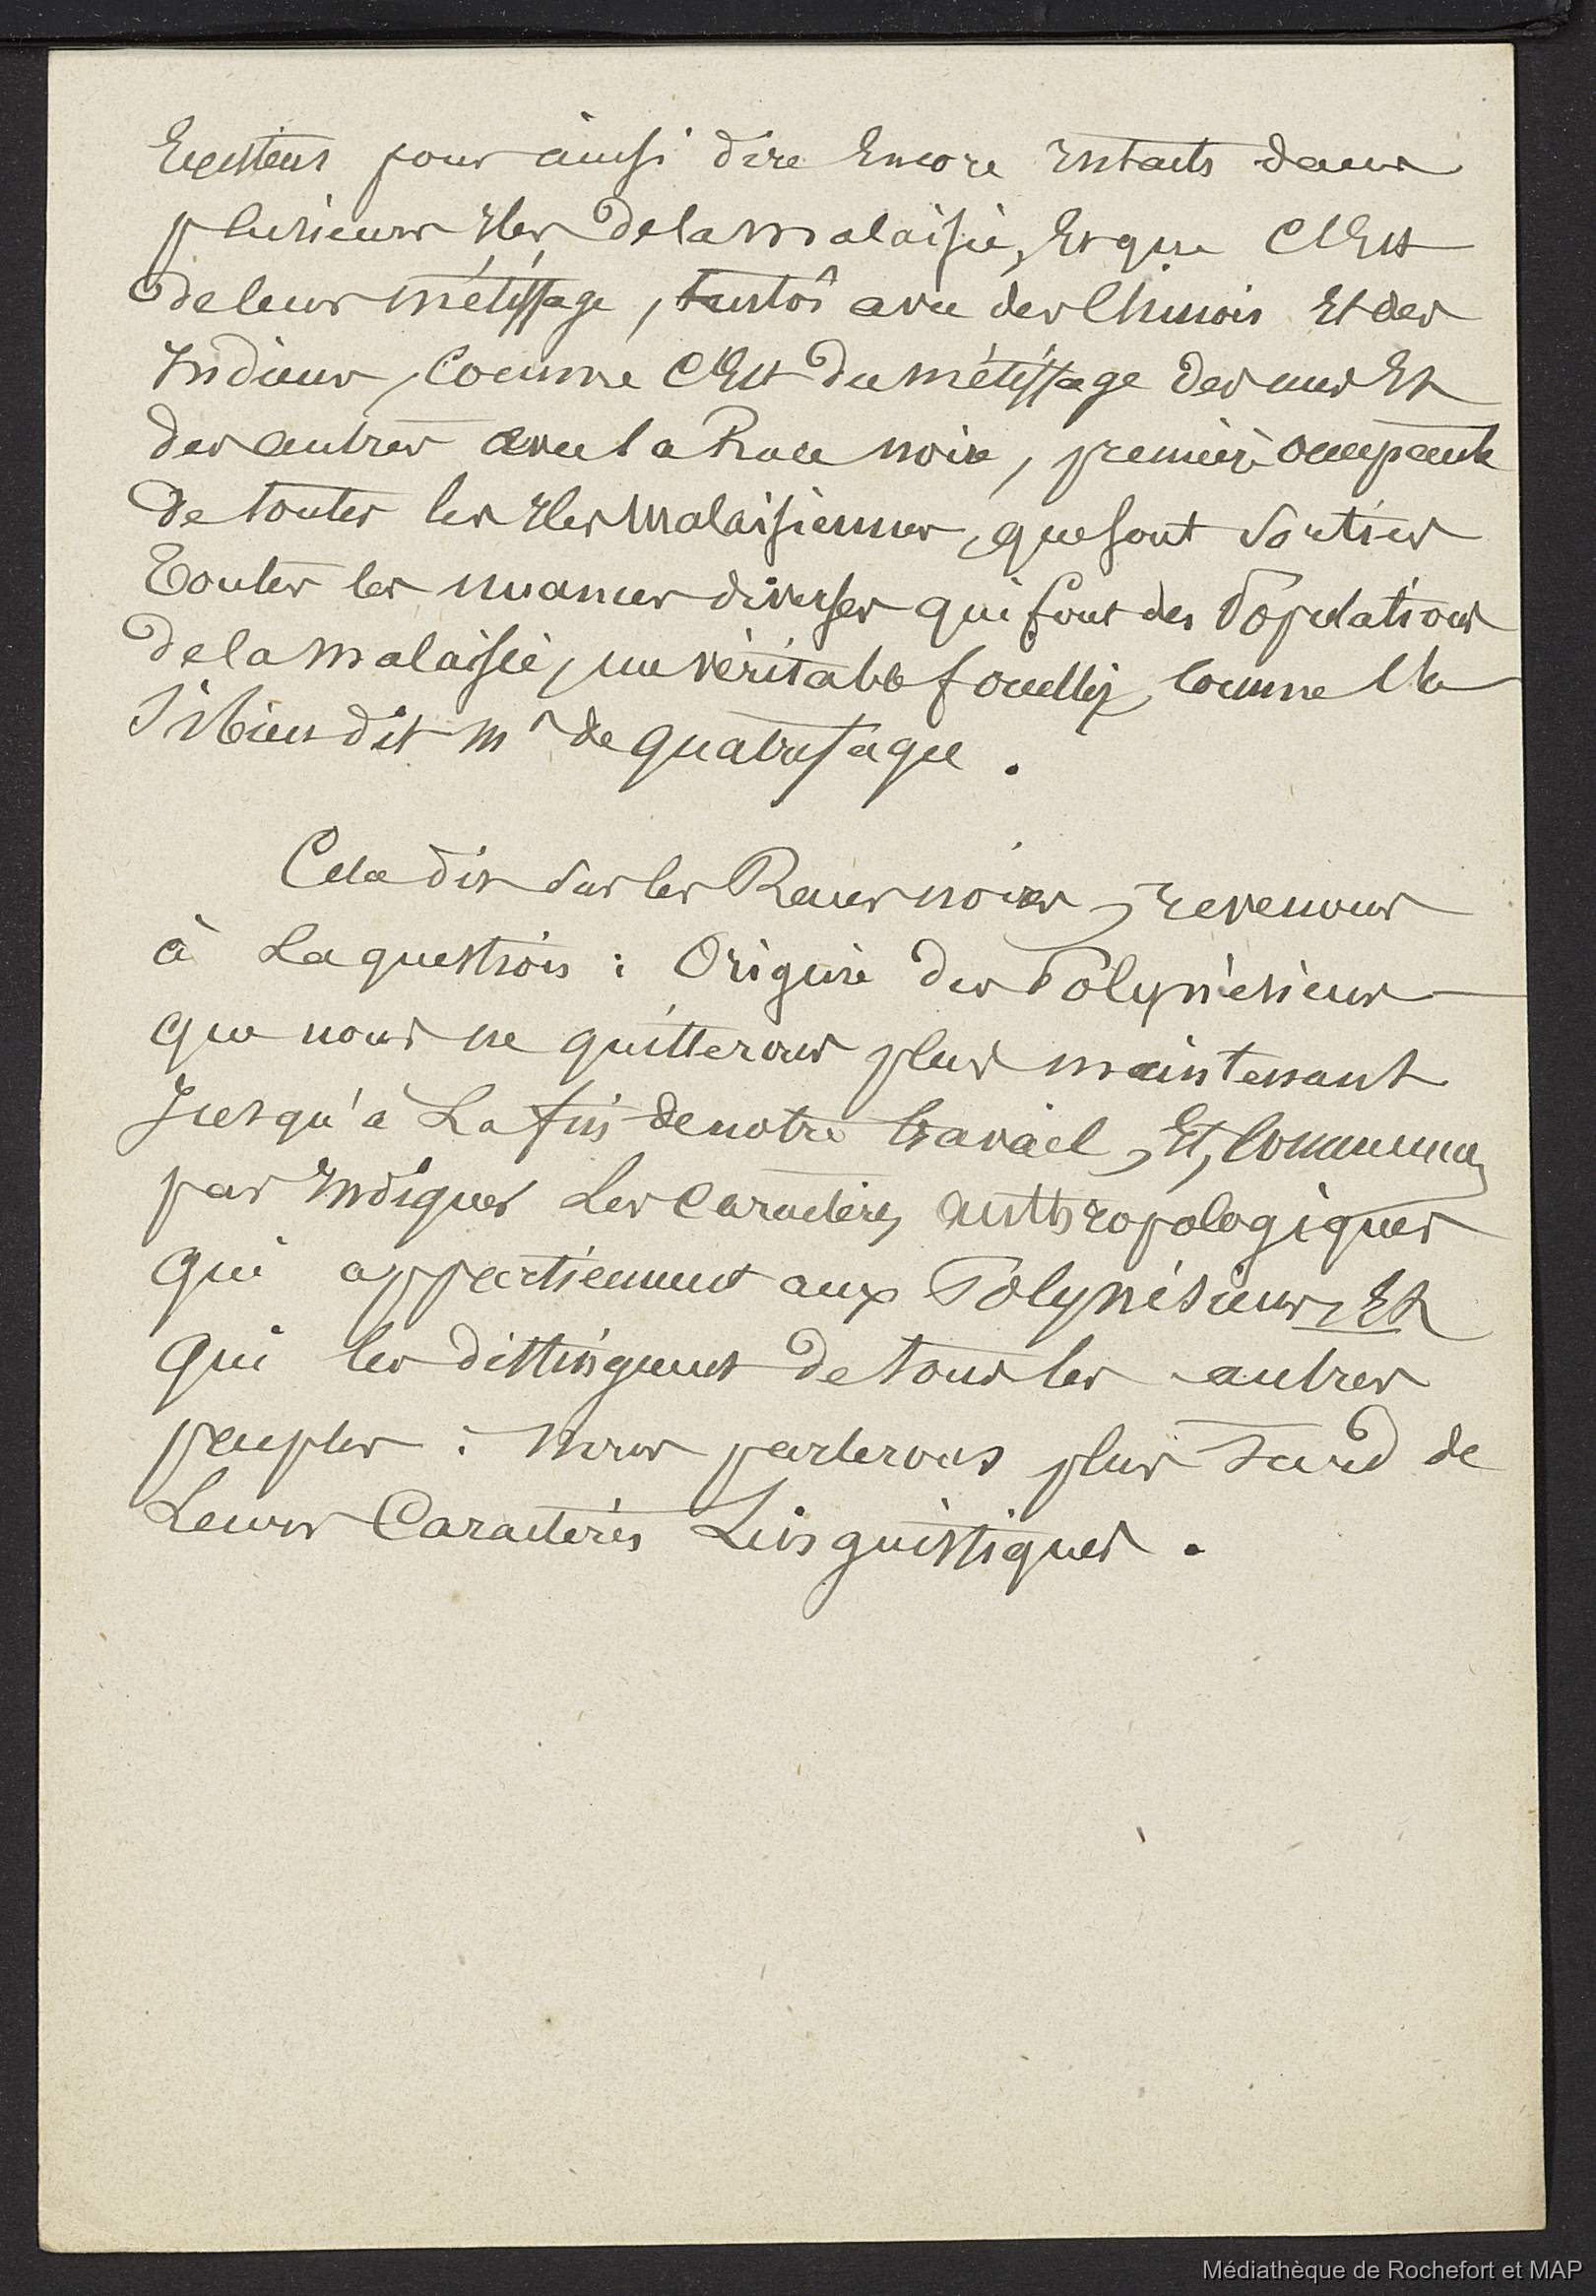 Existent pour ainsi dire Encore Intacts dans
plusieurs Iles de la malaisie, Et que C'Est
de leur métissage, tantôt avec des Chinois Et des
Indiens, Comme C'Est du métissage des uns Et
des autres avec la Race noire, première occupante
de toutes les Iles malaisiennes, que sont sorties
Toutes les nuances diverses qui font des Populations
de la malaisie, un véritable fouillis, Comme l'a
si bien dit mr de quatrefages.
Cela dit sur les Races noires, revenons
à La question : Origine des Polynésiens
que nous ne quitterons plus maintenant
Jusqu'à La fin de notre travail, Et, Commençons
par Indiquer Les Caractères anthropologiques
qui appartiennent aux Polynésiens, Et
qui les distinguent de tous les autres
peuples : nous parlerons plus tard de
Leurs Caractères Linguistiques.
Médiathèque de Rochefort et MAP